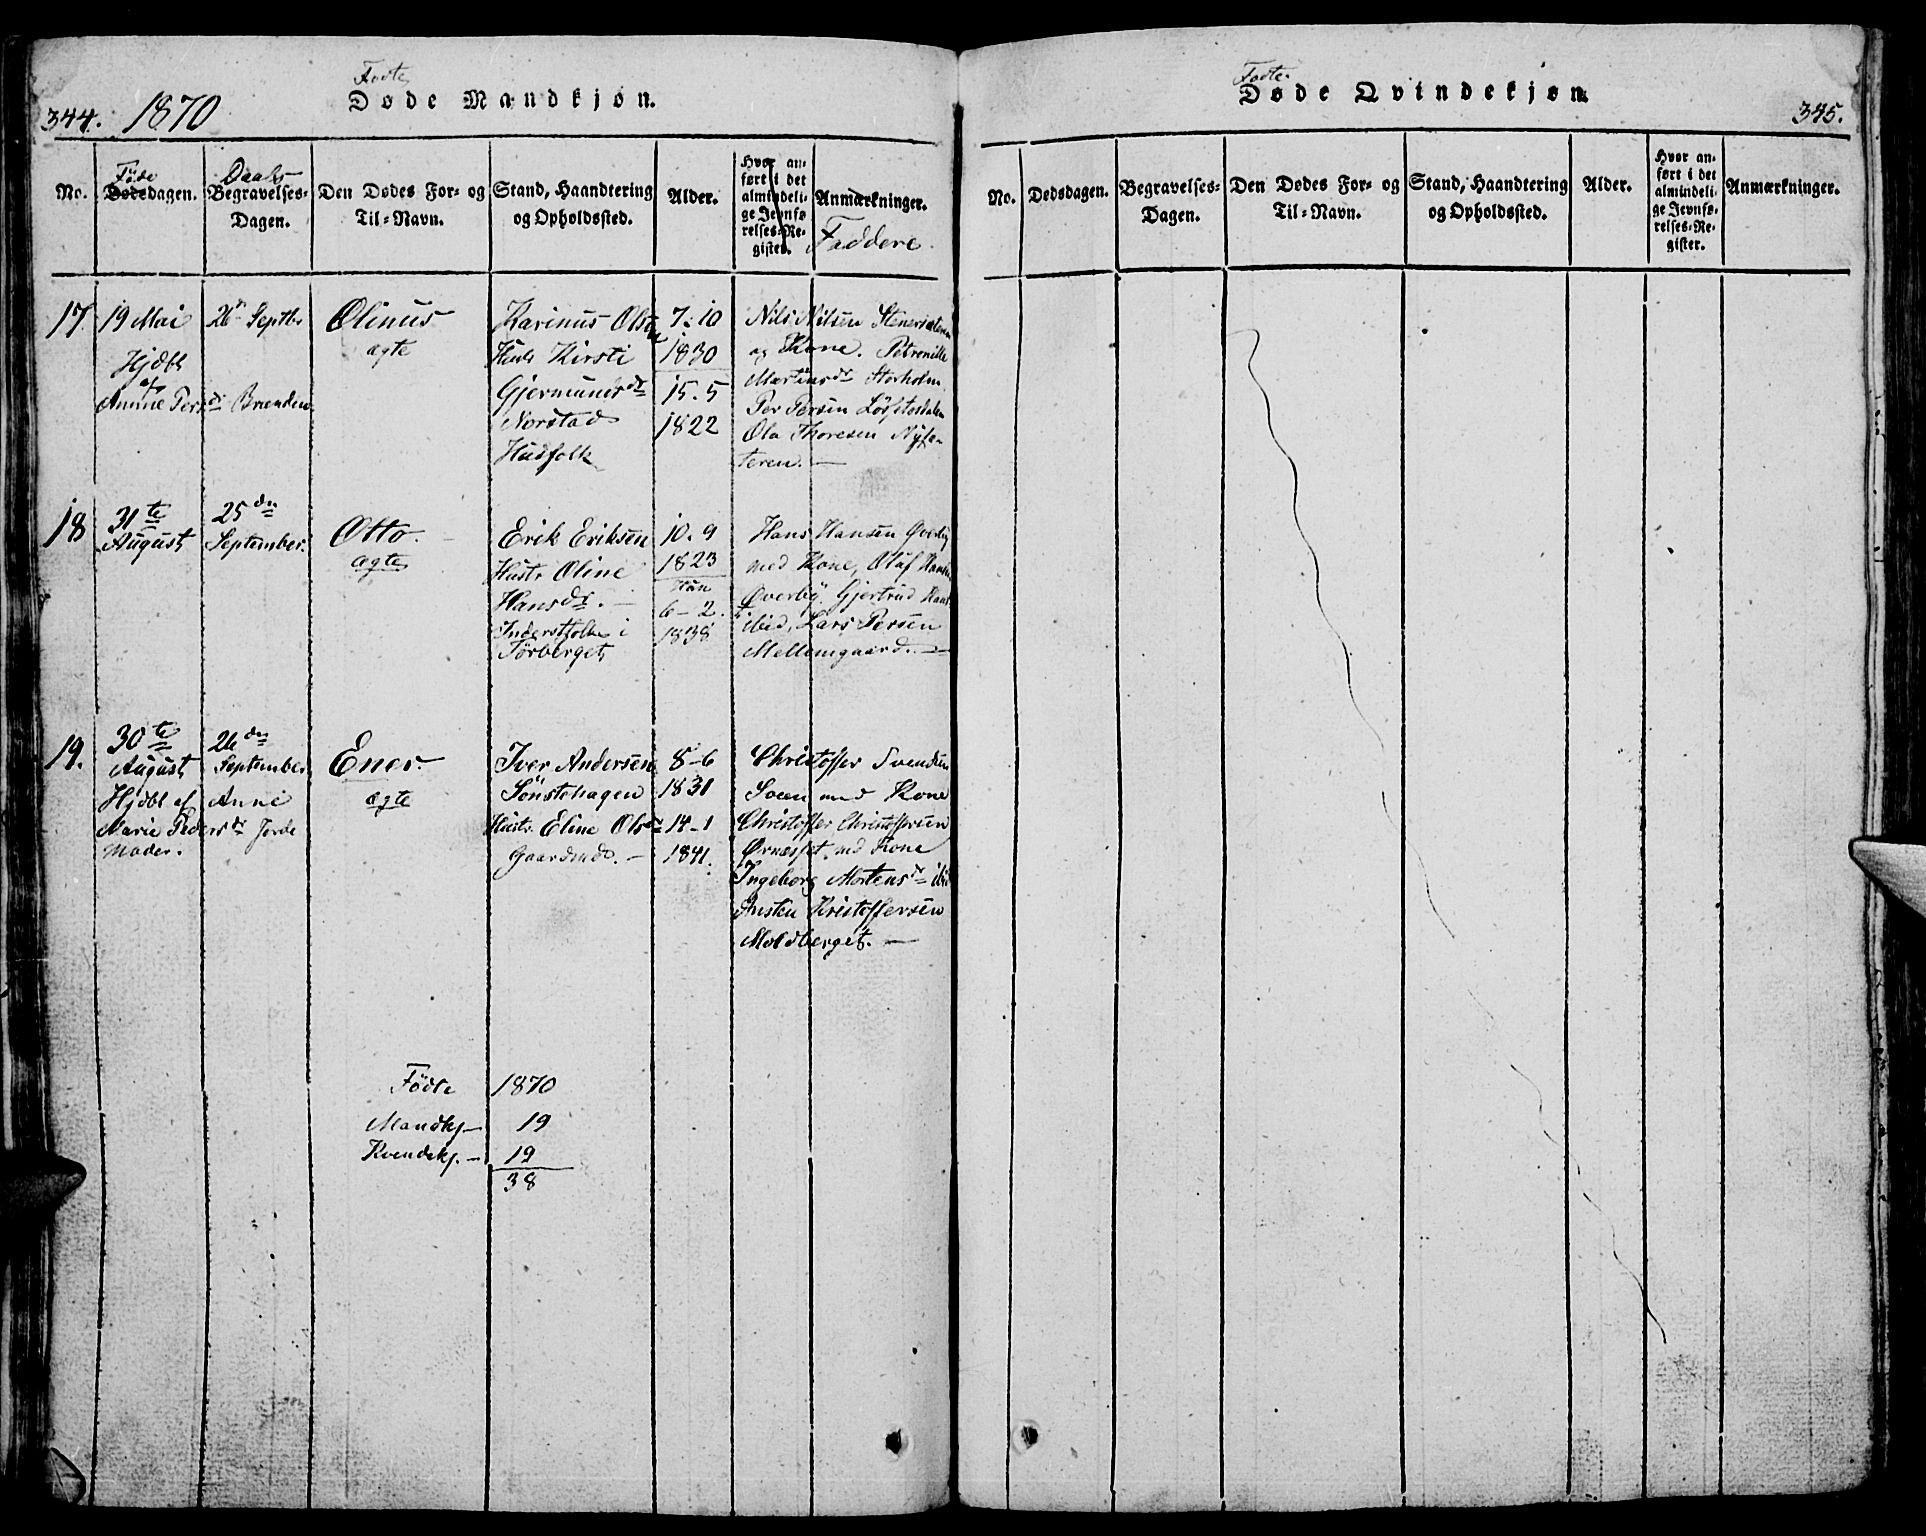 344. 1870
Fødte
Døde Mandkjøn.
No.
Føde
Dødsdagen.
Daabs
Begravelses-
Dagen.
Den Dødes For- og
Til-Navn.
Stand, Haandtering
og Opholdssted.
Alder.
Hvor an-
ført i det
almindeli-
ge Jevnfø-
relses-Re-
gister.
Anmærkninger.
Faddere.
17
19 Mai
Hjdbt
af
Annne Persdr Brænden
26 Septbr
Olinus
ægte
Karinus Olsen
Hustr Kirsti
Gjermundsdr
Norstad
Husfolk
7. 10
1830
15. 5
1822
Nils Nilsen Stenersæteren
og Kone. Petronille
Martinsdr Storholm
Per Persen
Ola Thoresen Nysæ-
teren. —
18
31te
August
25de
September.
Otto.
ægte
Erik Eriksen
Hustr Oline
Hansdr. —
Inderstfolk i
Førberget
10. 9
1823
Hun
6 - 2.
1838
Hans Hansen Øverby
med Kone, Oluf Hansen
Øverby. Gjertrud Hansdr
ibid, Lars Persen
Mellemgaard. —
19.
30te
August
Hjdbt af Anne
Marie Pedersdr Jorde
Moder.
26de
September
Ener.
ægte
Iver Andersen
Sönstehagen
Hustr. Eline Olsdr
Gaardmd. —
8-6
1831
14-1
1841.
Christoffer Svendsen
Soen med Kone
Christoffer Christoffersen
Ørnæsset md Kone
Ingeborg Mortensdr ibid
Ansten Kristoffersen
Moldberget. —
Födte 1870
Mandkj — 19
Kvendekj. — 19
38
345.
Fødte
Døde Qvindekjøn.
No.
Dødsdagen.
Begravelses-
Dagen.
Den Dødes For- og
Til-Navn.
Stand, Haandtering
og Opholdssted.
Alder.
Hvor an-
ført i det
almindeli-
ge Jevnfø-
relses-Re-
gister.
Anmærkninger.